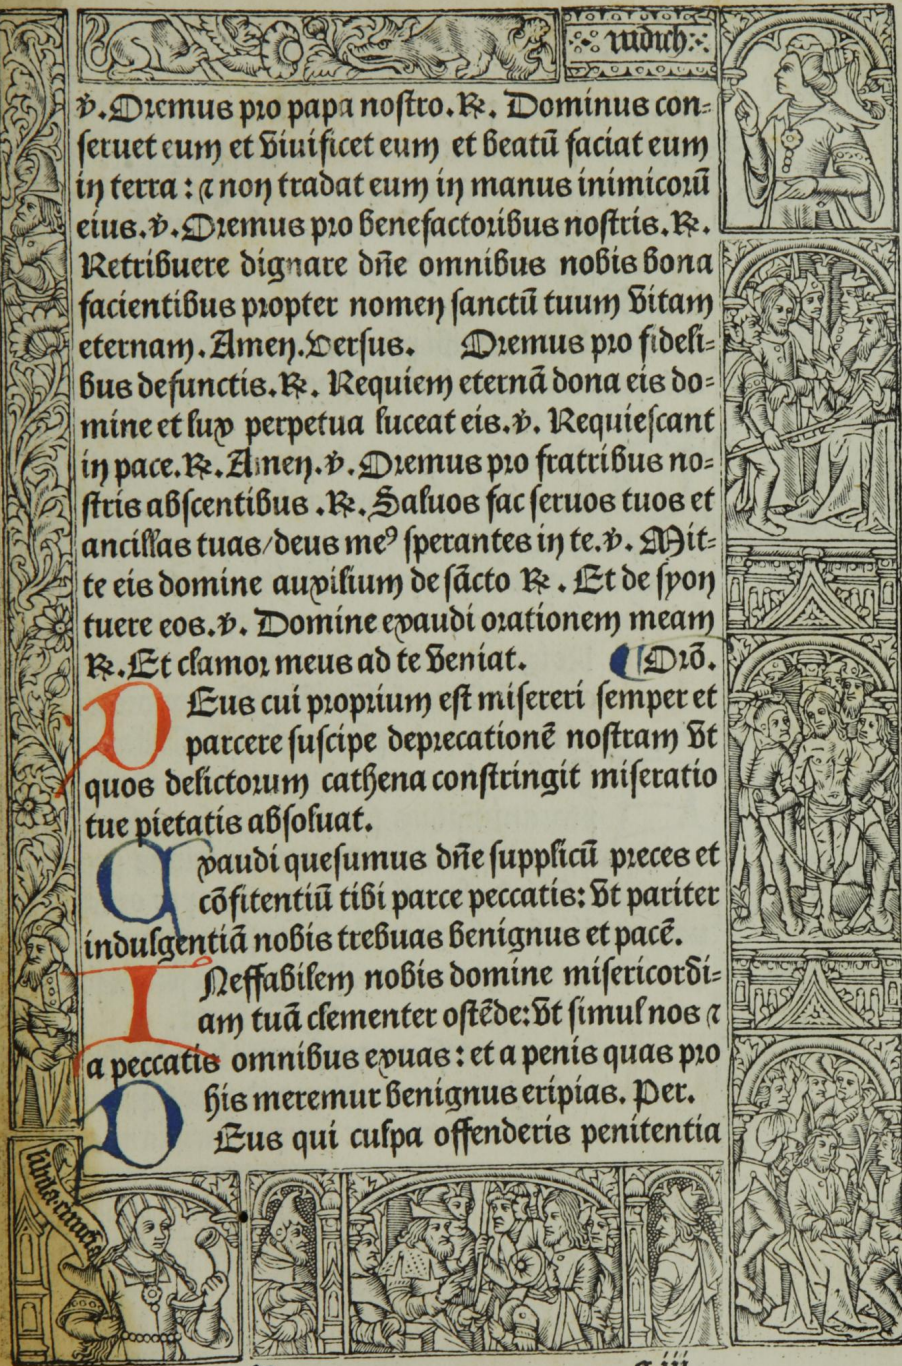 iudich
℣. Oremus pro papa nostro. ℟. Dominus con-
seruet eum et viuificet eum et beatū faciat eum
in terra: ⁊ non tradat eum in manus inimicorū
eius. ℣. Oremus pro benefactoribus nostris. ℟.
Retribuere dignare dñe omnibus nobis bona
facientibus propter nomen sanctū tuum vitam
eternam. Amen. Versus. Oremus pro fideli-
bus defunctis. ℟. Requiem eternā dona eis do-
mine et lux perpetua luceat eis. ℣. Requiescant
in pace. ℟. Amen. ℣. Oremus pro fratribus no-
stris abscentibus. ℟. Saluos fac seruos tuos et
ancillas tuas/deus meꝰ sperantes in te. ℣. Mit-
te eis domine auxilium de sācto ℟. Et de syon
tuere eos. ℣. Domine exaudi orationem meam
℟. Et clamor meus ad te veniat. ¶ Orō.
DEus cui proprium est misereri semper et
parcere suscipe deprecationē nostram vt
quos delictorum cathena constringit miseratio
tue pietatis absoluat.
Exaudi quesumus dñe supplicū preces et
cōfitentiū tibi parce peccatis: vt pariter
indulgentiā nobis trebuas benignus et pacē.
INeffabilem nobis domine misericordi-
am tuā clementer ostēde: vt simul nos ⁊
a peccatis omnibus exuas: et a penis quas pro
his meremur benignus eripias. Per.
DEus qui culpa offenderis penitentia